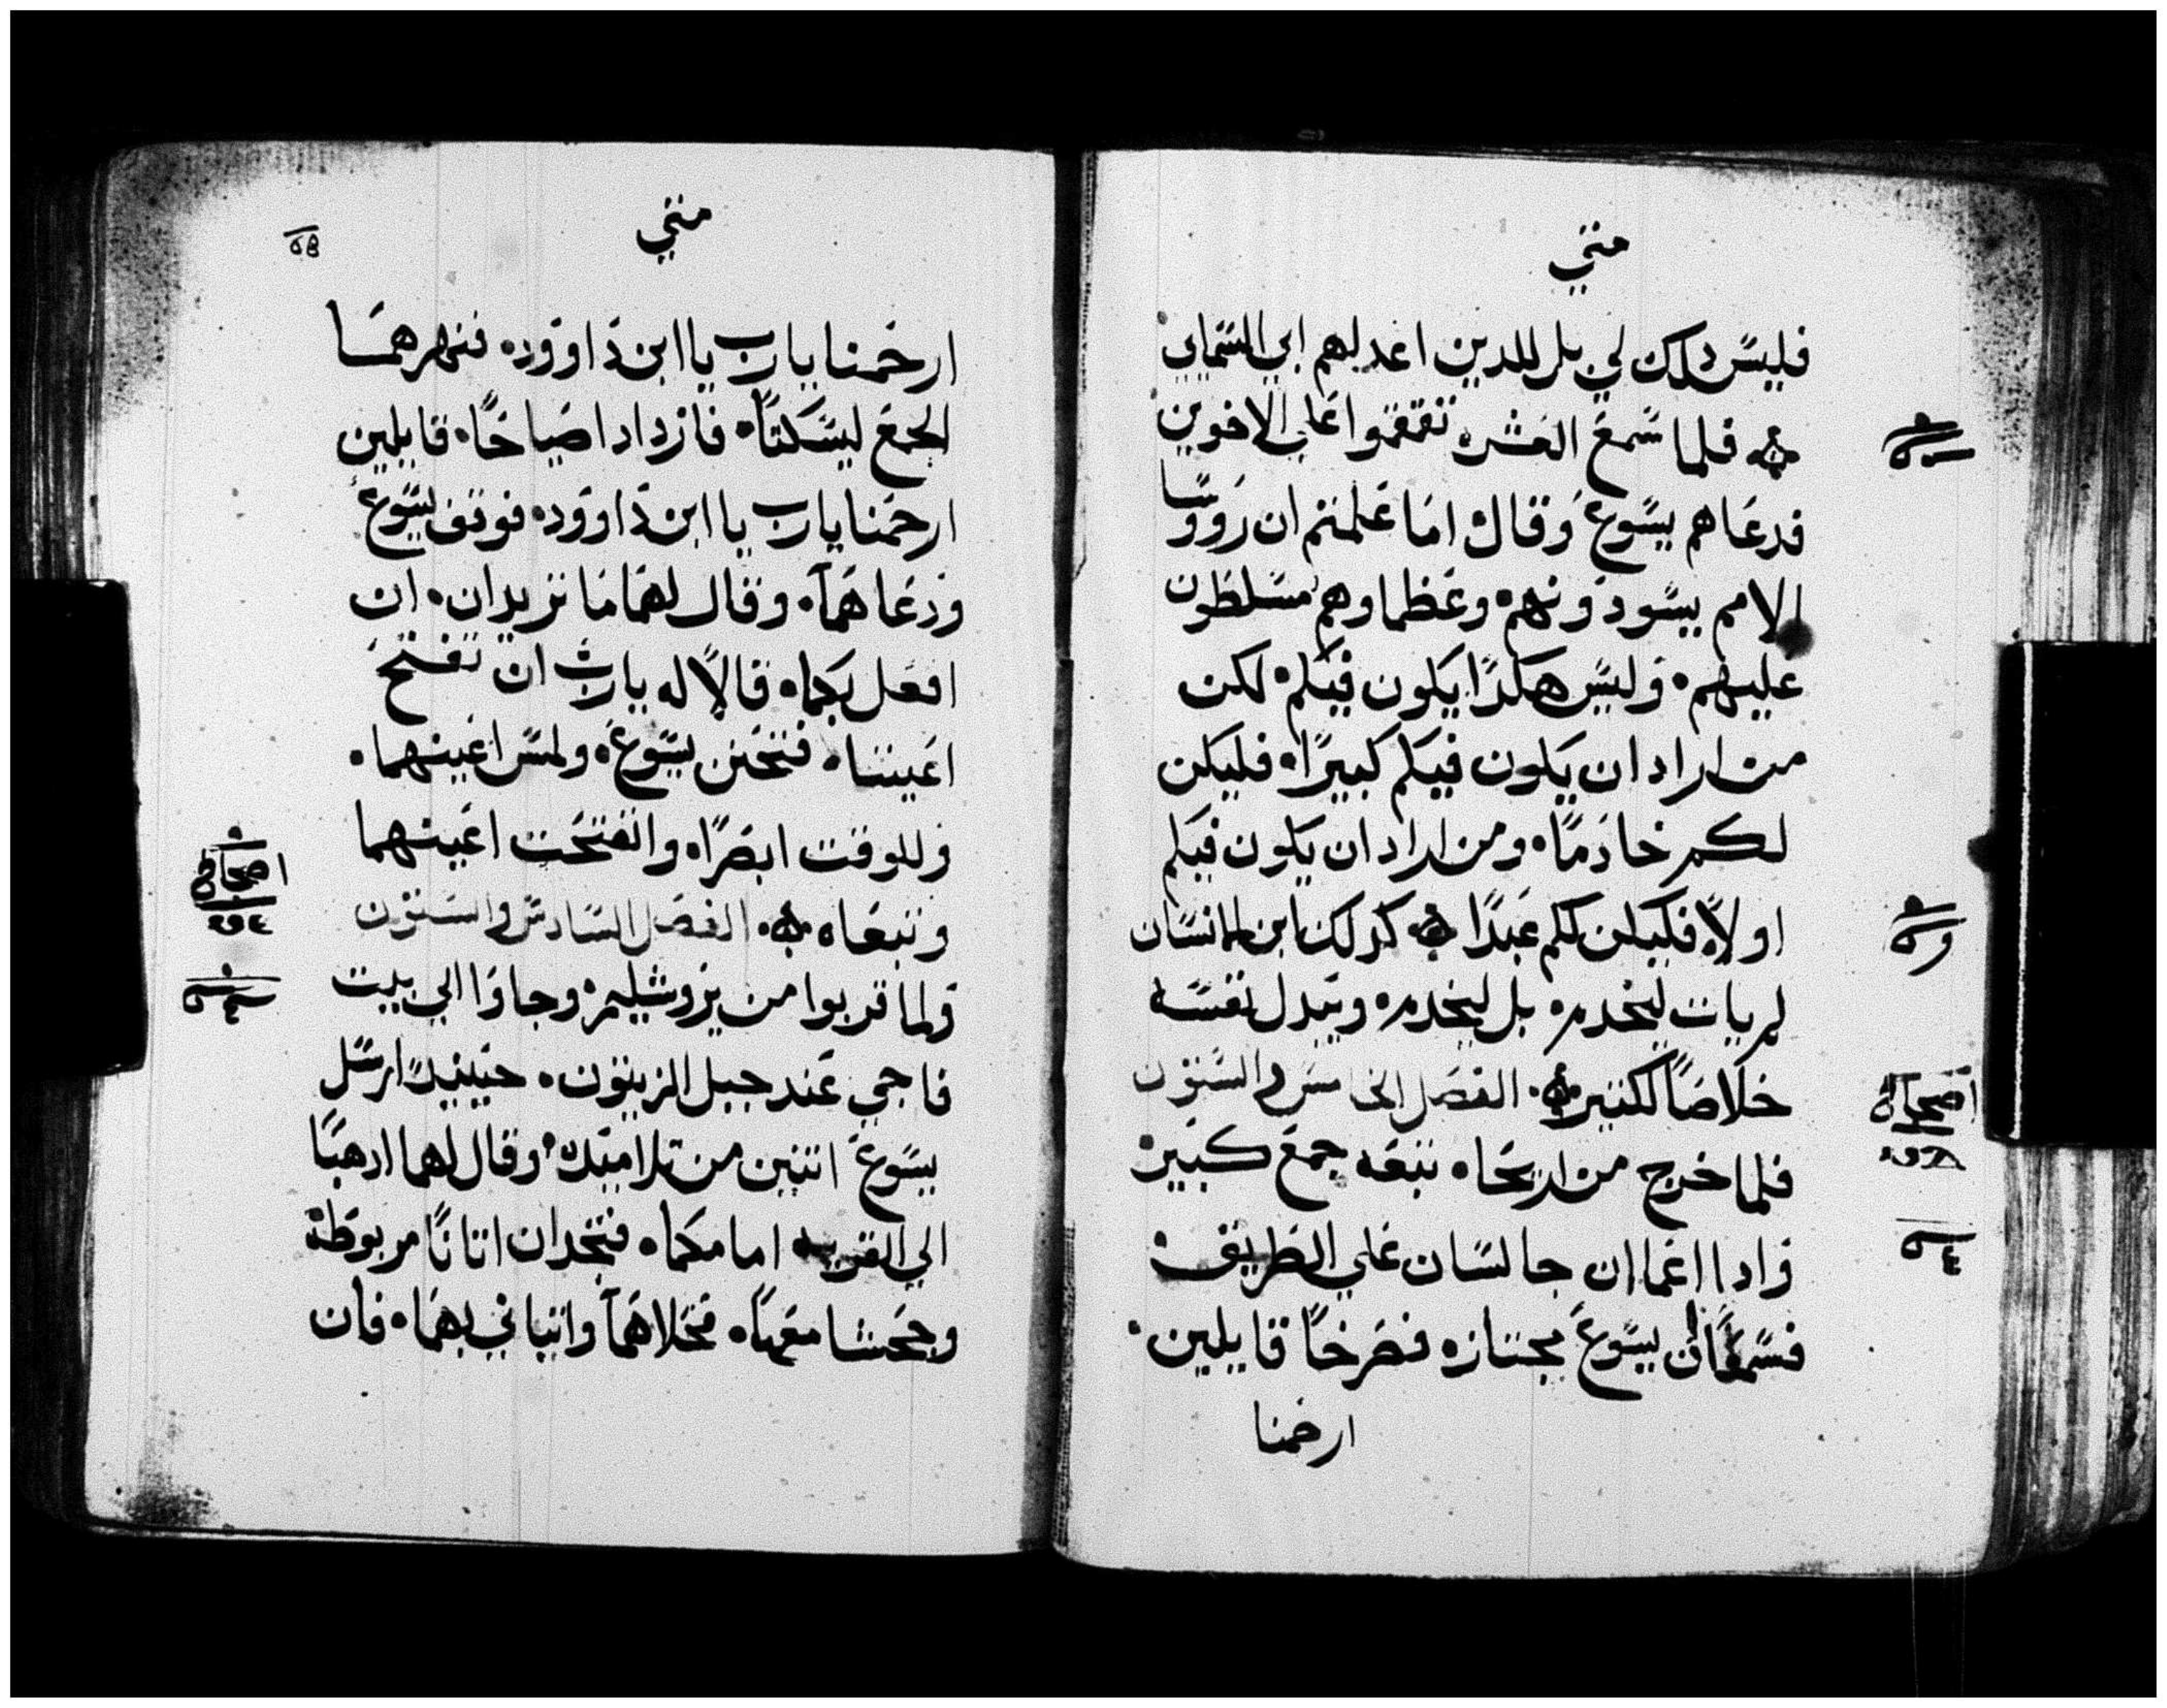 متي
فليس دلك لي بل للدين اعد لهم ابي السماييٰ
فلما سمع العشره تقمقموا علي الاخوين
فدعاهم يسوع وقال اما علمتم ان رووسا
الامم يسودونهم وعظماوهم مسلطون
عليهم وليس هكدا يكون فيكم لكن
من اراد ان يكون فيكم كبيرًا فليكن
لكم خادمًا ومن اراد ان يكون فيكم
اولًا فليكن لكم عبدًا كدلك ابن الانسان
لم يات ليخدم بل ليخدم ويبدل نفسه
خلاصًا لكتير الفصل الخامس والستون
فلما خرج من اريحا تبعه جمع كبير
وادا اعماان جالسان علي الطريق
فسمعا ان يسوع مجتاز فصرخا قايلين
ارحمنا
اصحاح
اصحاح
متي
ارحمنا يارب يا ابن داوود فنهرهما
الجمع ليسكتا فازدادا صياحًا قايلين
ارحمنا يارب يا ابن داوود فوقف يسوع
ودعاهما وقال لهما ما تريدان ان
افعل بكما قالا له يارب ان تفتح
اعيننا فتحنن يسوع ولمس اعينهما
وللوقت ابصرا وانفتحت اعينهما
وتبعاه الفصل السادس والستون
ولما قربوا من يروشليم وجاوا الي بيت
فاجي عند جبل الزيتون حينيدٍ ارسل
يسوع اتنين من تلاميده وقال لهما ادهبا
الي القريه امامكما فتجدان اتانًا مربوطه
وجحشا معها فحلاهما واتياني بهما فان